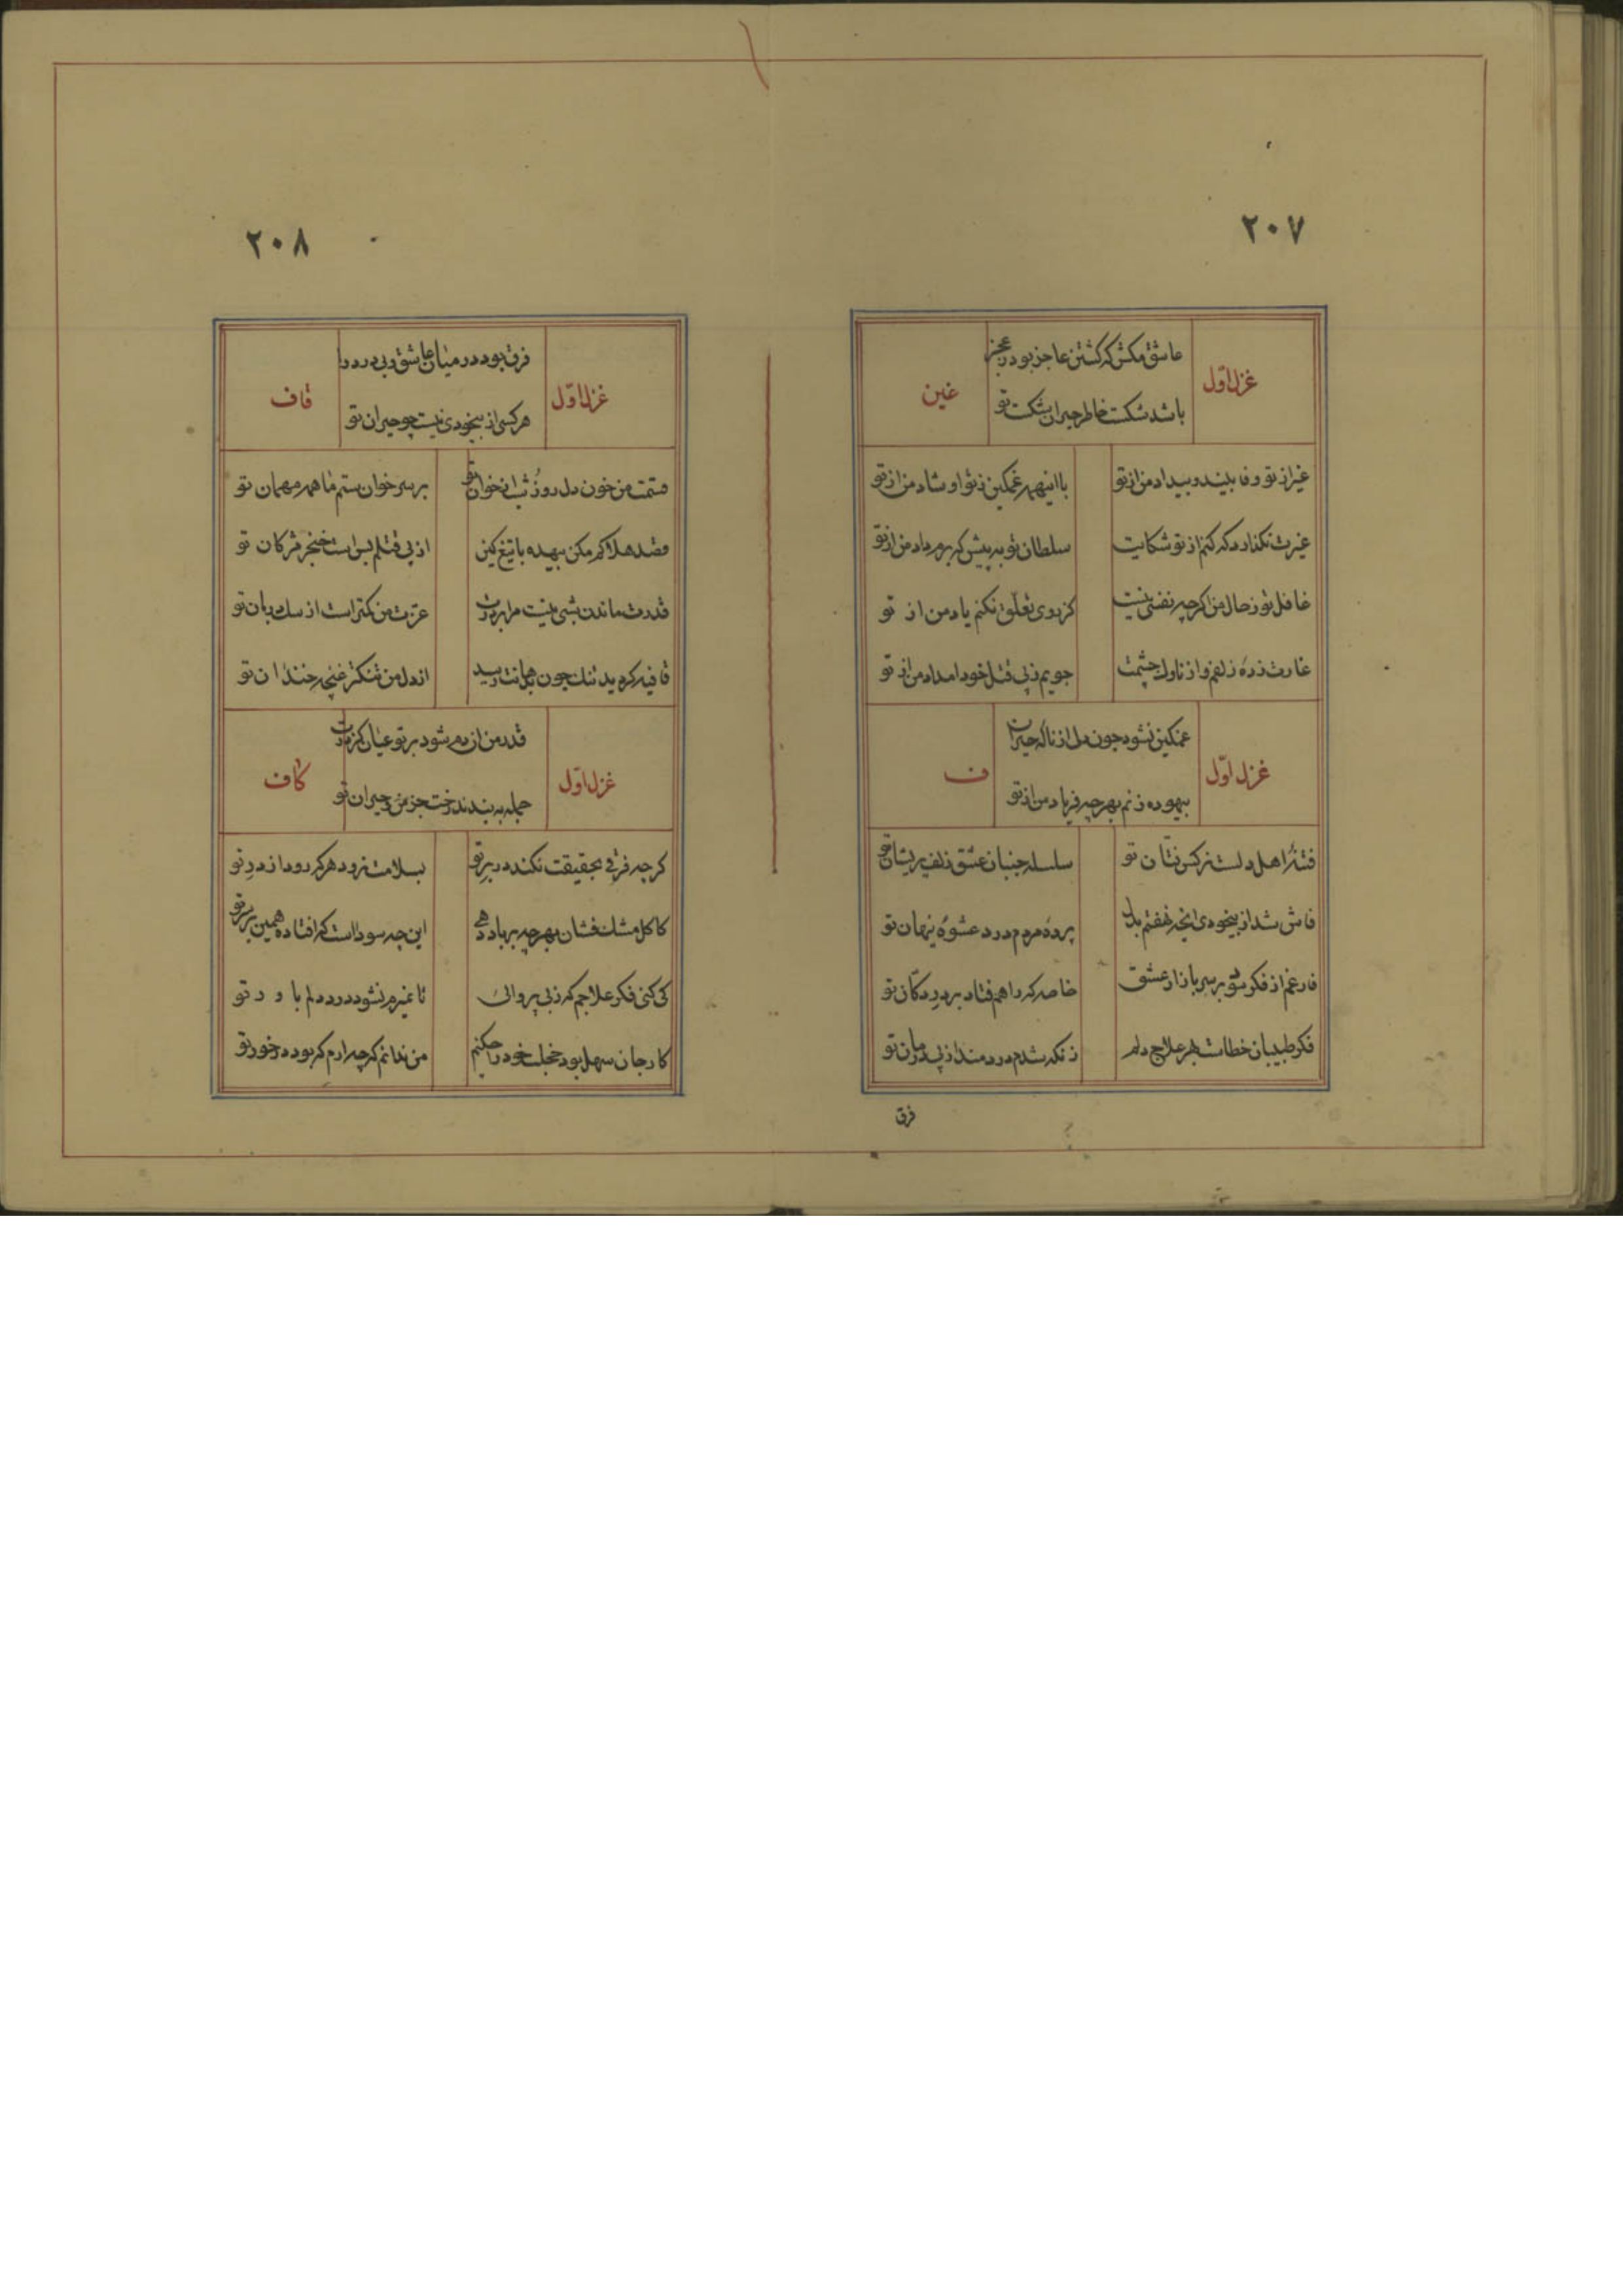 ۲۰۷
غزل اوّل
عاشق مکش که کشتن عاجز بود ز عجز
باشد شکست خاطر حیران شکست تو
غین
غیر از تو وفا بیند و بیداد من از تو
با اینهمه غمکین ز تو او شاد من از تو
غیرت نکذارد که کنم از تو شکایت
سلطان تو به پیش که برم داد من از تو
غافل تو ز حال من اکر چه نفسی نیست
کز روی تعلّق نکنم یاد من از تو
غارت زده زلفم و از ناوک چشمت
جویم ز پی قتل خود امداد من از تو
غزل اوّل
غمکین نشود چون دل از ناله حیران
بیهوده زنم بهر چه فریاد من از تو
ف
فتنهٔ اهل دلست نرکس فتان تو
سلسله جنبان عشق زلف پریشان تو
فاش شد از بیخودی آنچه نهفتم بدل
پرده مردم درد عشوهٔ پنهان تو
فارغم از فکر سود بر سر بازار عشق
خاصه که راهم فتاد بر در دکّان تو
فکر طبیبان خطاست بهر علاج دلم
زنکه شدم دردمند از پی درمان تو
فرق
۲۰۸
غزل اوّل
فرق بود در میان عاشق و بی درد را
هر کسی از بیخودی نیست چو حیران تو
قاف
قسمت من خون دل روز و شب از خوان تو
بر سر خوان ستم ما همه مهمان تو
قصد هلاکم مکن بیهده با تیغ کین
از پی قتلم بس است خنجر مژکان تو
قدرت ماندن شبی نیست مرا بر درت
عزت من کمتر است از سک دربان تو
قافیه کردید تنک چون بدهانت رسید
از دل من تنکتر غنچه خندان تو
غزل اوّل
قدر من از در شود بر تو عیان کز درت
جمله ببندند رخت جز من و حیران تو
کاف
کر چه فرقی بحقیقت نکند در بر تو
بسلامت نرود هر که رود از در تو
کاکل مشک فشان بهر چه بر باد دهی
این چه سودا است که افتاده همین بر سر تو
کی کنی فکر علاجم که ز بی پروائی
تا نمیرم نشود درد دلم باور تو
کار جان سهل بود خجلت خود را چکنم
من ندانم که چه ارم که بود در خور تو